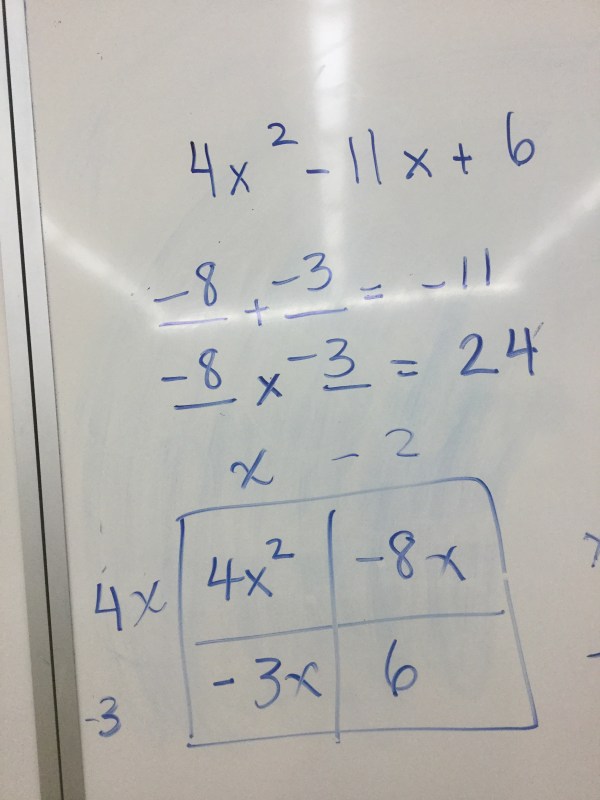 4x² - 11x + 6
-8 + -3 = -11
-8 x -3 = 24
x - 2
4x 4x² -8x
-3 -3x 6